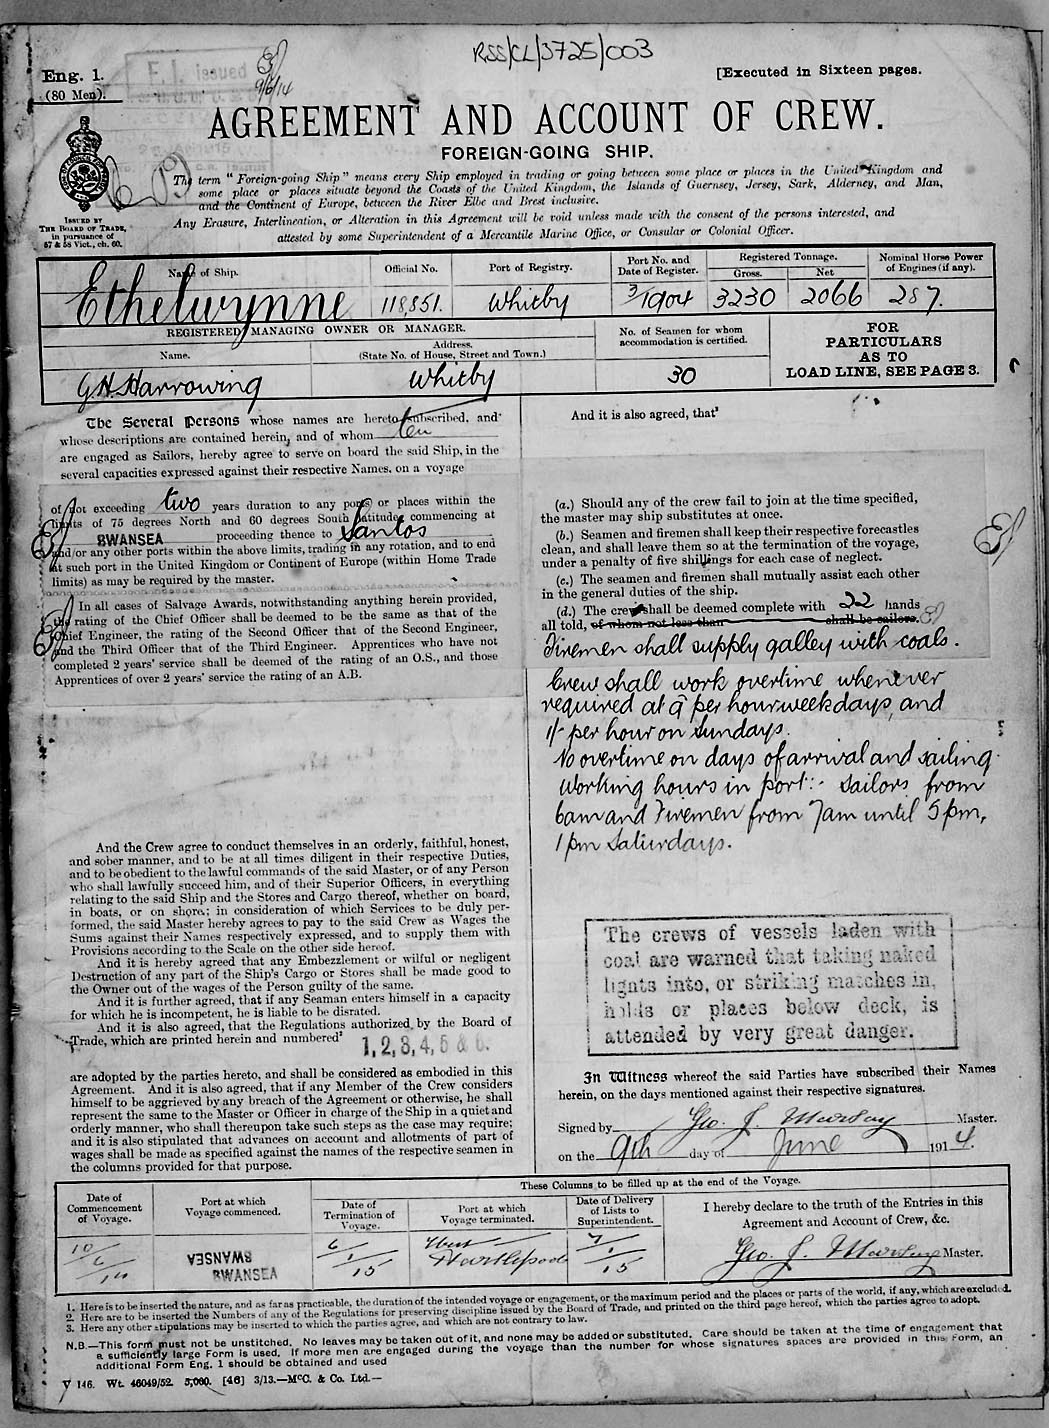 RSS/CL/3725/003
Eng. 1.
(80 Men).
F.I. issued
9/6/14
[Executed in Sixteen pages.
AGREEMENT AND ACCOUNT OF CREW.
FOREIGN-GOING SHIP.
ISSUED BY
THE BOARD OF TRADE,
in pursuance of
57 & 58 Vict., ch. 60.
The term "Foreign-going Ship" means every Ship employed in trading or going between some place or places in the United Kingdom and
some place or places situate beyond the Coasts of the United Kingdom, the Islands of Guernsey, Jersey, Sark, Alderney, and Man,
and the Continent of Europe, between the River Elbe and Brest inclusive.
Any Erasure, Interlineation, or Alteration in this Agreement will be void unless made with the consent of the persons interested, and
attested by some Superintendent of a Mercantile Marine Office, or Consular or Colonial Officer.
Name of Ship. Official No. Port of Registry. Port No. and Date of Register. Registered Tonnage. Gross. Net Nominal Horse Power of Engines (if any).
Ethelwynne 118,851. Whitby 3/1904 3230 2066 287.
REGISTERED MANAGING OWNER OR MANAGER.
Name. Address. (State No. of House, Street and Town.)
No. of Seamen for whom accommodation is certified.
FOR
PARTICULARS
AS TO
LOAD LINE, SEE PAGE 3.
G.H. Harrowing Whitby 30
The Several Persons whose names are hereto subscribed, and
whose descriptions are contained herein, and of whom ten
are engaged as Sailors, hereby agree to serve on board the said Ship, in the
several capacities expressed against their respective Names, on a voyage
of not exceeding two years duration to any ports or places within the
limits of 75 degrees North and 60 degrees South latitude, commencing at
SWANSEA proceeding thence to Santos
and/or any other ports within the above limits, trading in any rotation, and to end
at such port in the United Kingdom or Continent of Europe (within Home Trade
limits) as may be required by the master.
In all cases of Salvage Awards, notwithstanding anything herein provided,
the rating of the Chief Officer shall be deemed to be the same as that of the
Chief Engineer, the rating of the Second Officer that of the Second Engineer,
and the Third Officer that of the Third Engineer. Apprentices who have not
completed 2 years' service shall be deemed of the rating of an O.S., and those
Apprentices of over 2 years' service the rating of an A.B.
And the Crew agree to conduct themselves in an orderly, faithful, honest,
and sober manner, and to be at all times diligent in their respective Duties,
and to be obedient to the lawful commands of the said Master, or of any Person
who shall lawfully succeed him, and of their Superior Officers, in everything
relating to the said Ship and the Stores and Cargo thereof, whether on board,
in boats, or on shore; in consideration of which Services to be duly per-
formed, the said Master hereby agrees to pay to the said Crew as Wages the
Sums against their Names respectively expressed, and to supply them with
Provisions according to the Scale on the other side hereof.
And it is hereby agreed that any Embezzlement or wilful or negligent
Destruction of any part of the Ship's Cargo or Stores shall be made good to
the Owner out of the wages of the Person guilty of the same.
And it is further agreed, that if any Seaman enters himself in a capacity
for which he is incompetent, he is liable to be disrated.
And it is also agreed, that the Regulations authorized by the Board of
Trade, which are printed herein and numbered² 1, 2, 3, 4, 5 & 6.
are adopted by the parties hereto, and shall be considered as embodied in this
Agreement. And it is also agreed, that if any Member of the Crew considers
himself to be aggrieved by any breach of the Agreement or otherwise, he shall
represent the same to the Master or Officer in charge of the Ship in a quiet and
orderly manner, who shall thereupon take such steps as the case may require;
and it is also stipulated that advances on account and allotments of part of
wages shall be made as specified against the names of the respective seamen in
the columns provided for that purpose.
And it is also agreed, that³
(a.) Should any of the crew fail to join at the time specified,
the master may ship substitutes at once.
(b.) Seamen and firemen shall keep their respective forecastles
clean, and shall leave them so at the termination of the voyage,
under a penalty of five shillings for each case of neglect.
(c.) The seamen and firemen shall mutually assist each other
in the general duties of the ship.
(d.) The crew shall be deemed complete with 22 hands
all told, of whom not less than shall be sailors.
Firemen shall supply galley with coals.
Crew shall work overtime whenever
required at 9d per hour weekdays, and
1/- per hour on Sundays.
No overtime on days of arrival and sailing.
Working hours in port:- Sailors from
6am and Firemen from 7am until 5pm,
1pm Saturdays.
The crews of vessels laden with
coal are warned that taking naked
lights into, or striking matches in,
holds or places below deck, is
attended by very great danger.
In Witness whereof the said Parties have subscribed their Names
herein, on the days mentioned against their respective signatures.
Signed by Geo. J. Master.
on the 9th day of June 1914.
These Columns to be filled up at the end of the Voyage.
Date of Commencement of Voyage. Port at which Voyage commenced. Date of Termination of Voyage. Port at which Voyage terminated. Date of Delivery of Lists to Superintendent.
I hereby declare to the truth of the Entries in this
Agreement and Account of Crew, &c.
10/6/14 SWANSEA SWANSEA 6/1/15 West Hartlepool 7/1/15 Geo. J. Master.
1. Here is to be inserted the nature, and as far as practicable, the duration of the intended voyage or engagement, or the maximum period and the places or parts of the world, if any, which are excluded.
2. Here are to be inserted the Numbers of any of the Regulations for preserving discipline issued by the Board of Trade, and printed on the third page hereof, which the parties agree to adopt.
3. Here any other stipulations may be inserted to which the parties agree, and which are not contrary to law.
N.B.—This form must not be unstitched. No leaves may be taken out of it, and none may be added or substituted. Care should be taken at the time of engagement that
a sufficiently large Form is used. If more men are engaged during the voyage than the number for whose signatures spaces are provided in this Form, an
additional Form Eng. 1 should be obtained and used
V 146. Wt. 46049/52. 5,000. [46] 3/13.—McC. & Co. Ltd.—